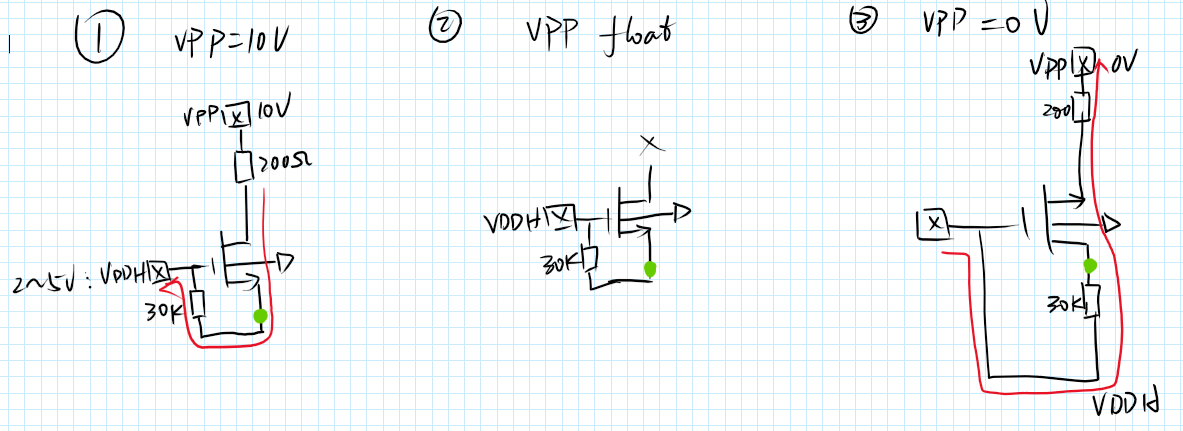 ① VPP=10V
VPP X 10V
200Ω
2~5V: VDDH X
30K
② VPP float
X
VDDH X
30K
③ VPP=0V
VPP X 0V
200
X
30K
VDDH